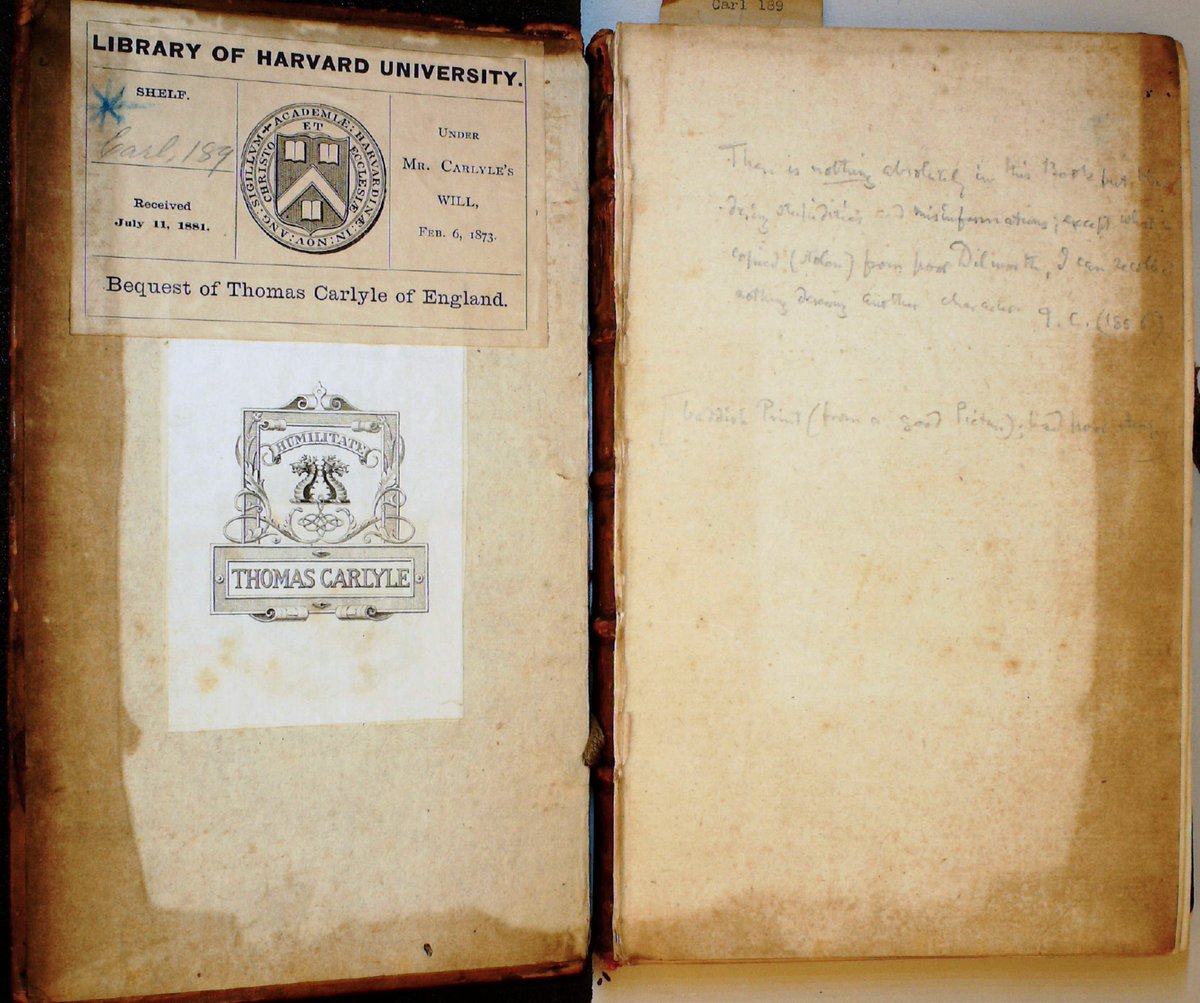 LIBRARY OF HARVARD UNIVERSITY.
SHELF.
Carl. 189
Received
July 11, 1881.
SIGILLVM ACADEMIÆ: HARVARDINÆ: IN: NOV: ANG:
CHRISTO ET ECCLESIÆ
UNDER
MR. CARLYLE'S
WILL,
FEB. 6, 1873.
Bequest of Thomas Carlyle of England.
HUMILITATE
THOMAS CARLYLE
Carl 189
There is nothing absolutely in this Book but
stupidities and misinformations; except what is
copied (stolen) from poor Dilworth, I can recollect
nothing deserving another character. T. C. (185
baddish Print (from a good Picture);